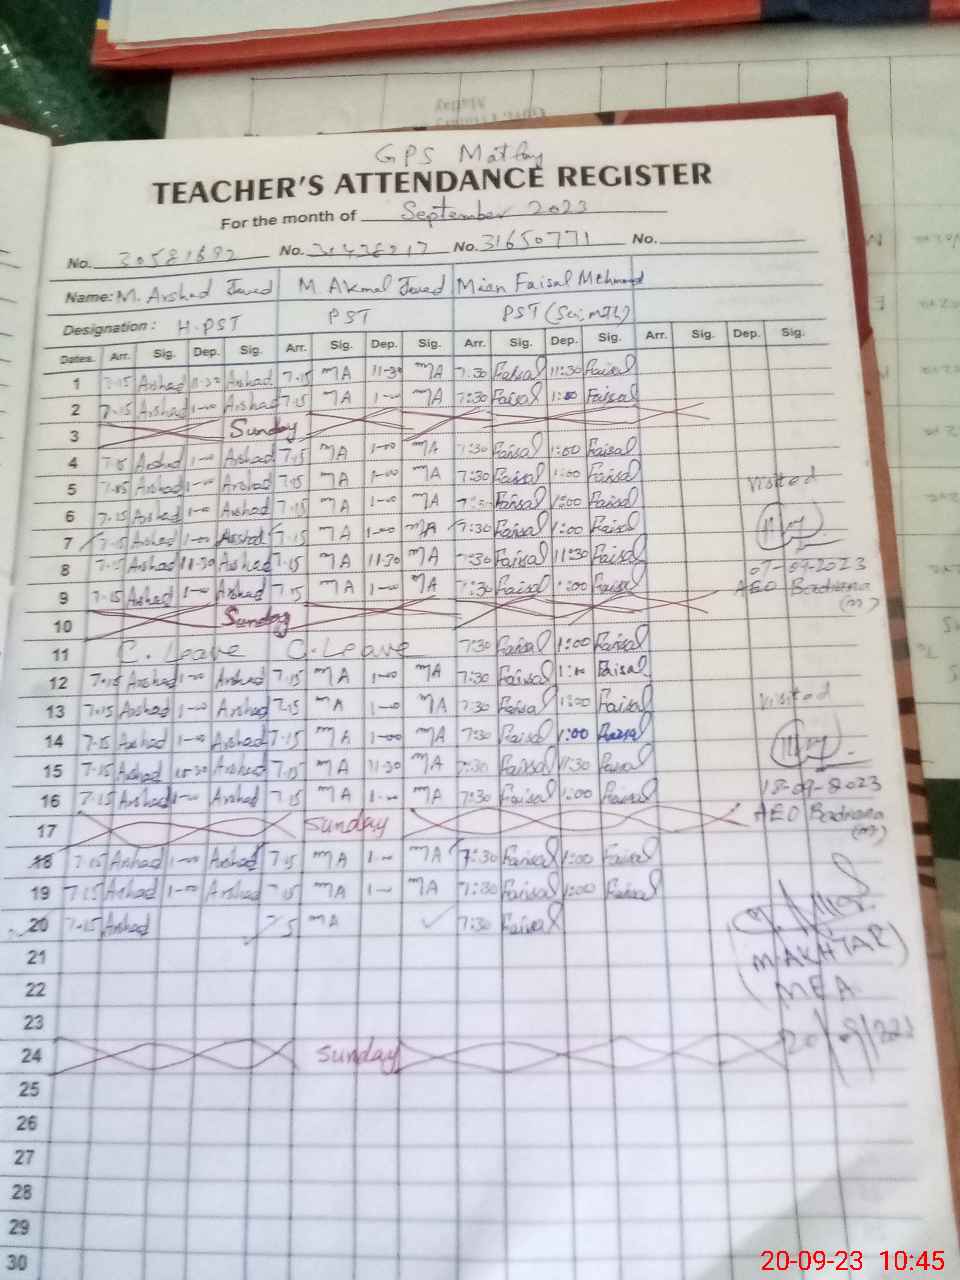 GPS Matlay
TEACHER'S ATTENDANCE REGISTER
For the month of September 2023
No. 30581692 No. 31428217 No. 31650771 No.
Name: M. Arshad Javed M Akmal Javed Mian Faisal Mehmood
Designation: H.PST PST PST (Sci, mth)
Dates. Arr. Sig. Dep. Sig. Arr. Sig. Dep. Sig. Arr. Sig. Dep. Sig. Arr. Sig. Dep. Sig.
1 7.15 Arshad 11-30 Arshad 7.15 MA 11-30 MA 7:30 Faisal 11:30 Faisal
2 7.15 Arshad 1-00 Arshad 7.15 MA 1-00 MA 7:30 Faisal 1:00 Faisal
3 Sunday
4 7.15 Arshad 1-00 Arshad 7.15 MA 1-00 MA 7:30 Faisal 1:00 Faisal
5 7.15 Arshad 1-00 Arshad 7.15 MA 1-00 MA 7:30 Faisal 1:00 Faisal
visited
6 7.15 Arshad 1-00 Arshad 7.15 MA 1-00 MA 7:30 Faisal 1:00 Faisal
7 7.15 Arshad 1-00 Arshad 7.15 MA 1-00 MA 7:30 Faisal 1:00 Faisal
8 7.15 Arshad 11-30 Arshad 7.15 MA 11-30 MA 7:30 Faisal 11:30 Faisal
07-09-2023
9 7.15 Arshad 1-00 Arshad 7.15 MA 1-00 MA 7:30 Faisal 1:00 Faisal
AEO Badriana
(m)
10 Sunday
11 C. Leave C. Leave 7:30 Faisal 1:00 Faisal
12 7.15 Arshad 1-00 Arshad 7.15 MA 1-00 MA 7:30 Faisal 1:00 Faisal
13 7.15 Arshad 1-00 Arshad 7.15 MA 1-00 MA 7:30 Faisal 1:00 Faisal
visited
14 7.15 Arshad 1-00 Arshad 7.15 MA 1-00 MA 7:30 Faisal 1:00 Faisal
15 7.15 Arshad 11-30 Arshad 7.15 MA 11-30 MA 7:30 Faisal 11:30 Faisal
16 7.15 Arshad 1-00 Arshad 7.15 MA 1-00 MA 7:30 Faisal 1:00 Faisal
18-09-2023
17 Sunday
AEO Badriana
(m)
18 7.15 Arshad 1-00 Arshad 7.15 MA 1-00 MA 7:30 Faisal 1:00 Faisal
19 7.15 Arshad 1-00 Arshad 7.15 MA 1-00 MA 7:30 Faisal 1:00 Faisal
20 7.15 Arshad MA 7:30 Faisal
21
(M. AKHTAR)
22
MEA
23
24 Sunday
20/9/2023
25
26
27
28
29
30
20-09-23 10:45